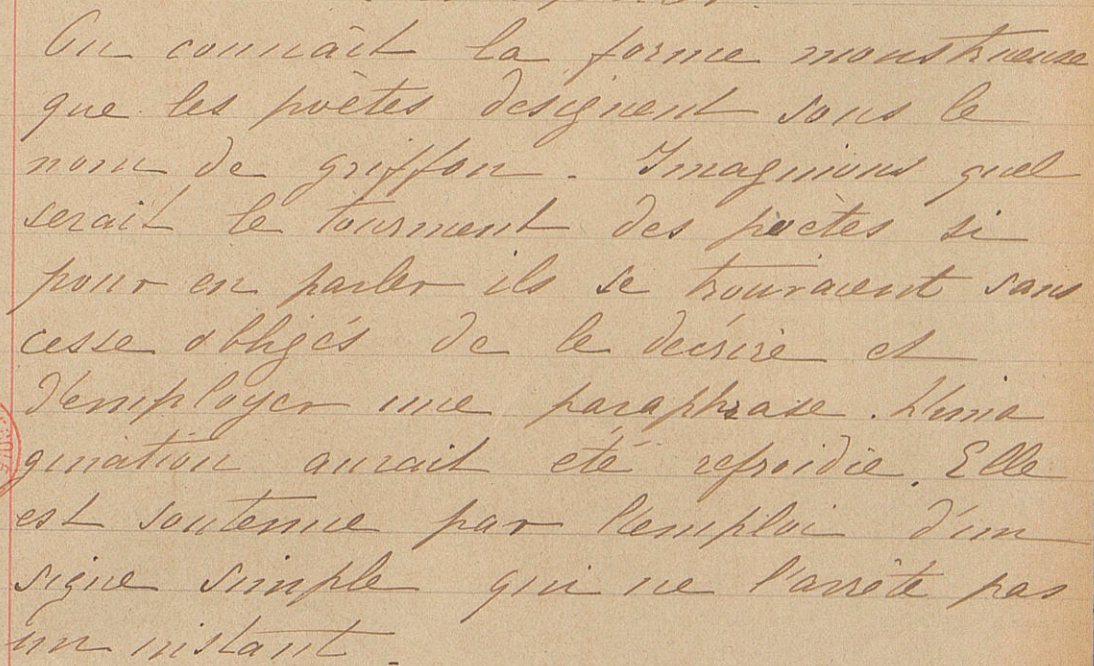 On connaît la forme monstrueuse
que les poètes designent sous le
nom de griffon. Imaginons quel
serait le tourment des poètes si
pour en parler ils se trouvaient sans
cesse obligés de le décrire et
d'employer une paraphrase. L'ima
gination aurait été refroidie. Elle
est soutenue par l'emploi d'un
signe simple qui ne l'arrête pas
un instant.